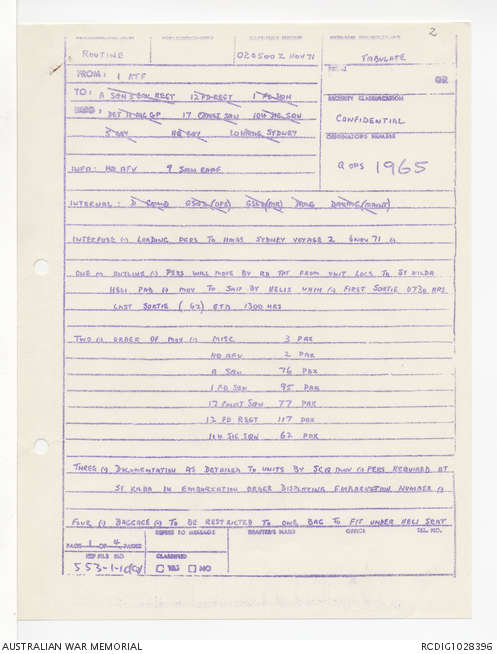 2
ROUTINE
020500Z NOV 71
TABULATE
FROM: 1 ATF
TO: A SQN 3 CAV REGT 12 FD REGT 1 FD SQN
17 CONST SQN 104 SIG SQN
HQ COY LO HMAS SYDNEY
SECURITY CLASSIFICATION
CONFIDENTIAL
ORIGINATORS NUMBER
Q OPS 1965
INFO: HQ AFV 9 SQN RAAF
INTERNAL:
INTERFUSE (.) LOADING PERS TO HMAS SYDNEY VOYAGE 2 6 NOV 71 (.)
ONE (.) OUTLINE (.) PERS WILL MOVE BY RD TPT FROM UNIT LOCS TO ST KILDA
HELI PAD (.) MOV TO SHIP BY HELIS UH1H (.) FIRST SORTIE 0730 HRS
LAST SORTIE (62) ETD 1300 HRS
TWO (.) ORDER OF MOV (.) MISC 3 PAX
HQ AFV 2 PAX
A SQN 76 PAX
1 FD SQN 95 PAX
17 CONST SQN 77 PAX
12 FD REGT 117 PAX
104 SIG SQN 62 PAX
THREE (.) DOCUMENTATION AS DETAILED TO UNITS BY MOV (.) PERS REQUIRED AT
ST KILDA IN EMBARKATION ORDER DISPLAYING EMBARKATION NUMBER (.)
FOUR (.) BAGGAGE (.) TO BE RESTRICTED TO ONE BAG TO FIT UNDER HELI SEAT
PAGE 1 OF 4 PAGES
REFERS TO MESSAGE
DRAFTER'S NAME
OFFICE
TEL. NO.
REF FILE NO
CLASSIFIED
553-1-
YES NO
AUSTRALIAN WAR MEMORIAL
RCDIG1028396